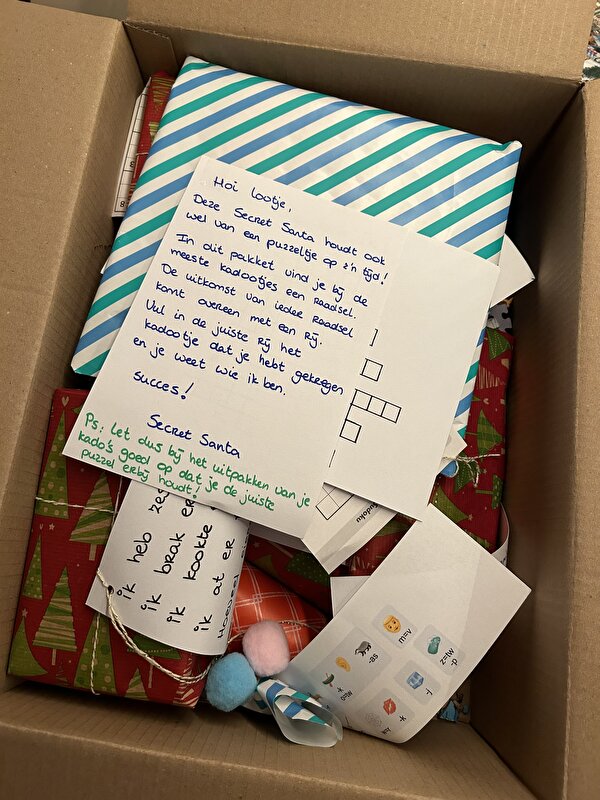 Hoi lootje,
Deze Secret Santa houdt ook
wel van een puzzeltje op z'n tijd!
In dit pakket vind je bij de
meeste kadootjes een raadsel.
De uitkomst van ieder raadsel
komt overeen met een rij.
Vul in de juiste rij het
kadootje dat je hebt gekregen
en je weet wie ik ben.
Succes!
Secret Santa
Ps: Let dus bij het uitpakken van je
kado's goed op dat je de juiste
puzzel erbij houdt!
ik heb zes
ik brak er
ik kookte
ik at er
udoku
m=v
-as
z=tw
-p
-j
-k